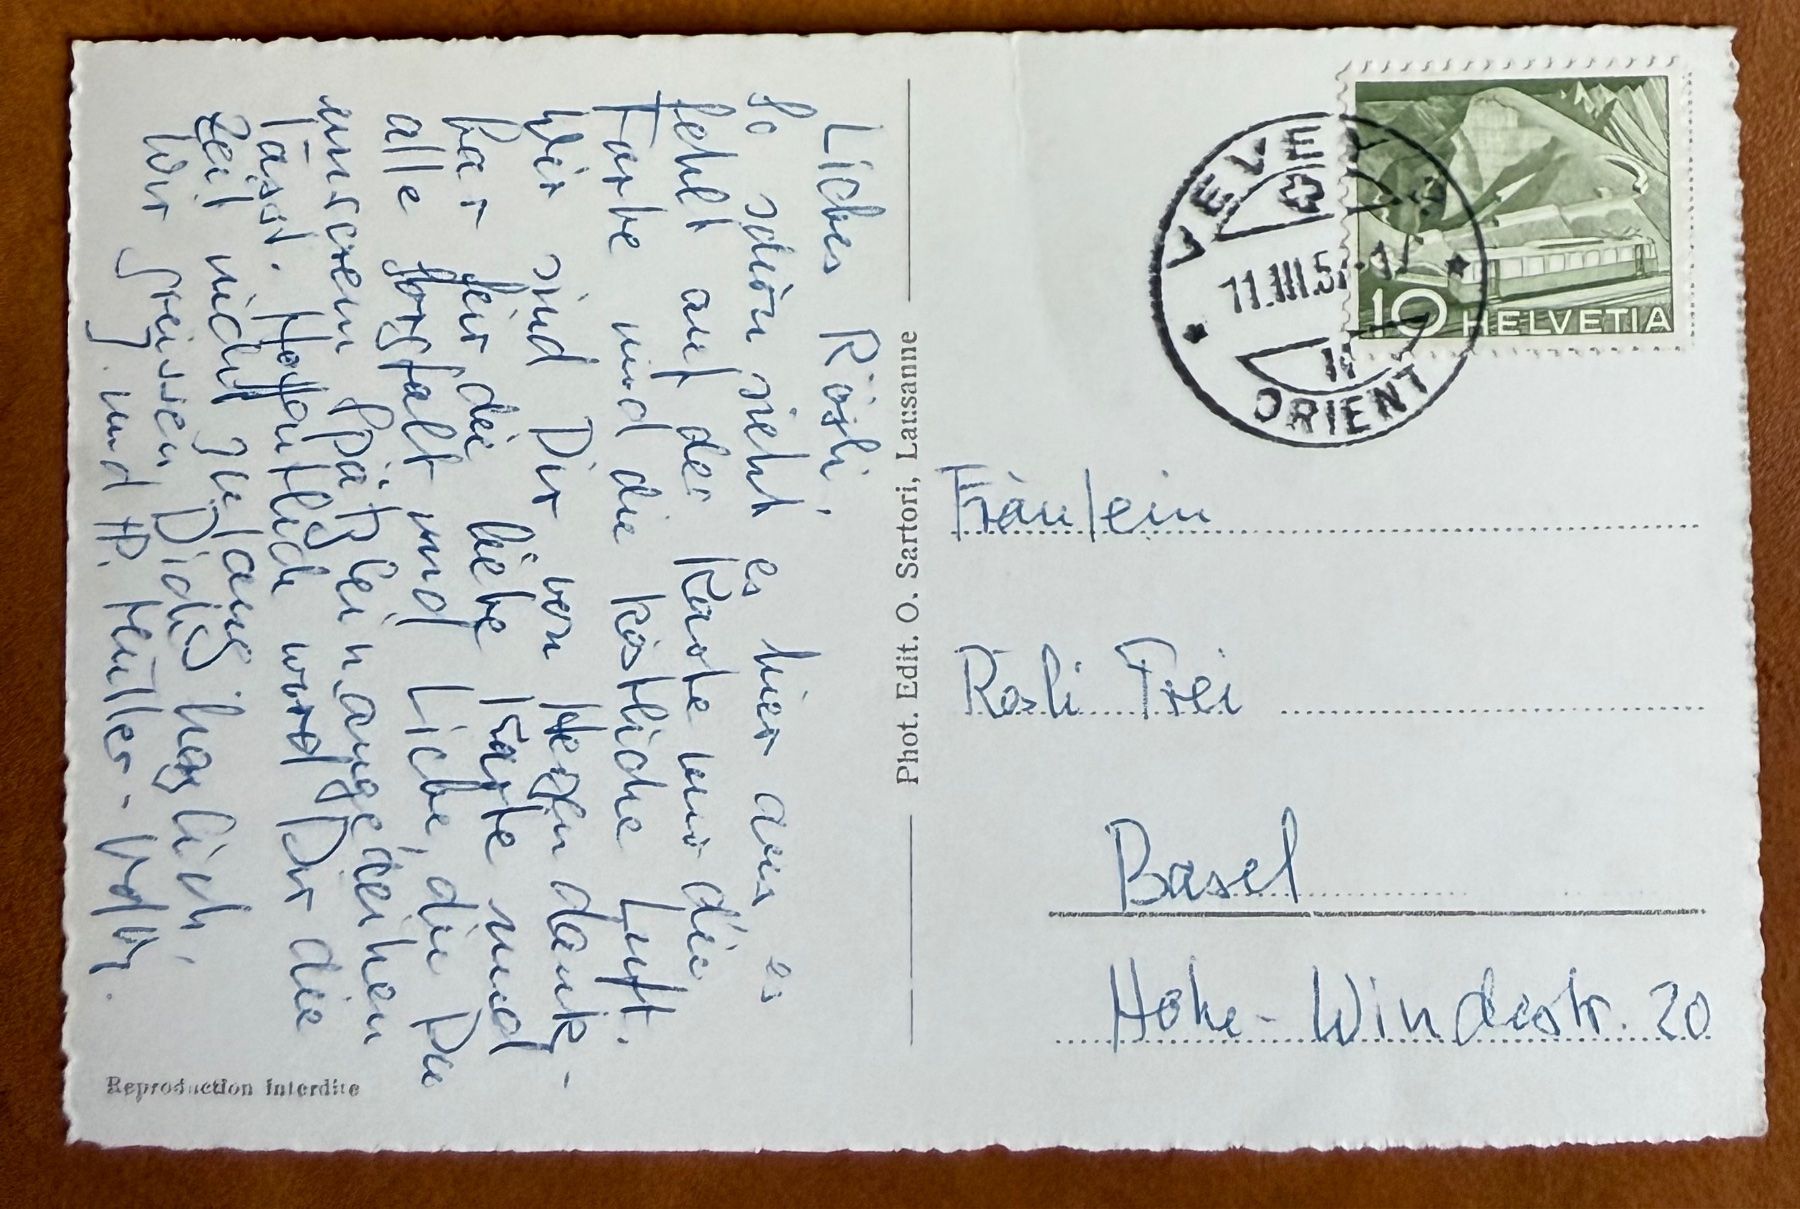 Liebes Rösli,
So schön sieht es hier aus es
fehlt auf der Karte nur die
Farbe und die köstliche Luft.
Wir sind Dir von Herzen dank-
bar für die liebe Karte und
alle Sorgfalt und Liebe, die Du
unserem Spätzlein angedeihen
lässt. Hoffentlich wird Dir die
Zeit nicht zu lang
Wir grüssen Dich herzlich,
und H. Müller-
Reproduction interdite
Phot. Edit. O. Sartori, Lausanne
ORIENT
11.III.5
10 HELVETIA
Fräulein
Rösli Frei
Basel
Hohe-Windestr. 20